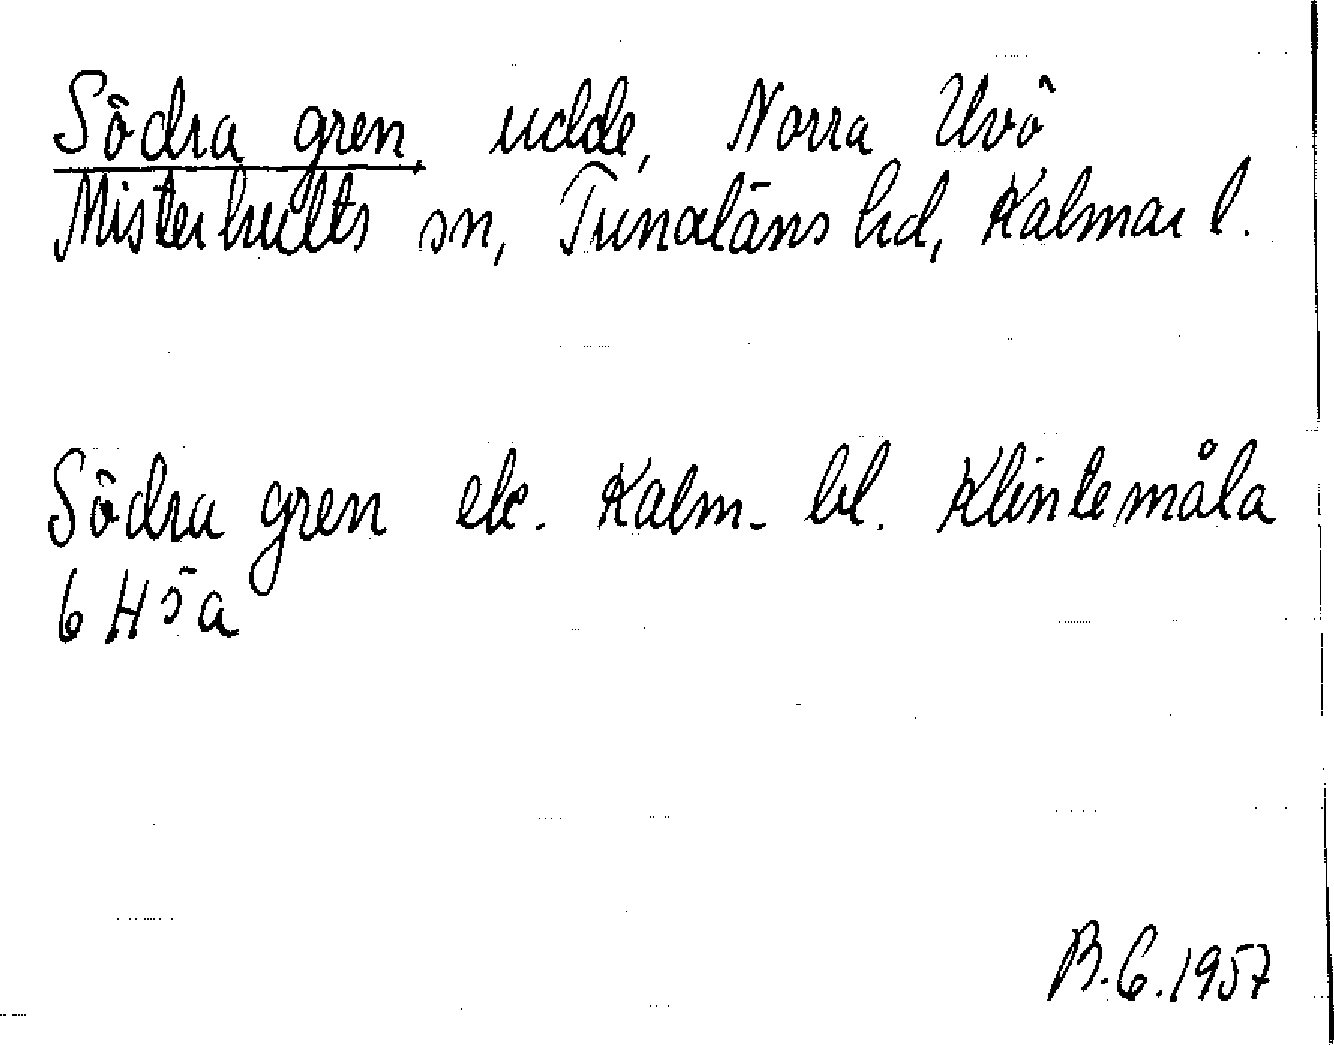 Södra gren, udde, Norra Uvö
Misterhults sn, Tunaläns hd, Kalmar l.
Södra gren ek. Kalm. bl. Klintemåla
6 H 5 a
B.G.1957